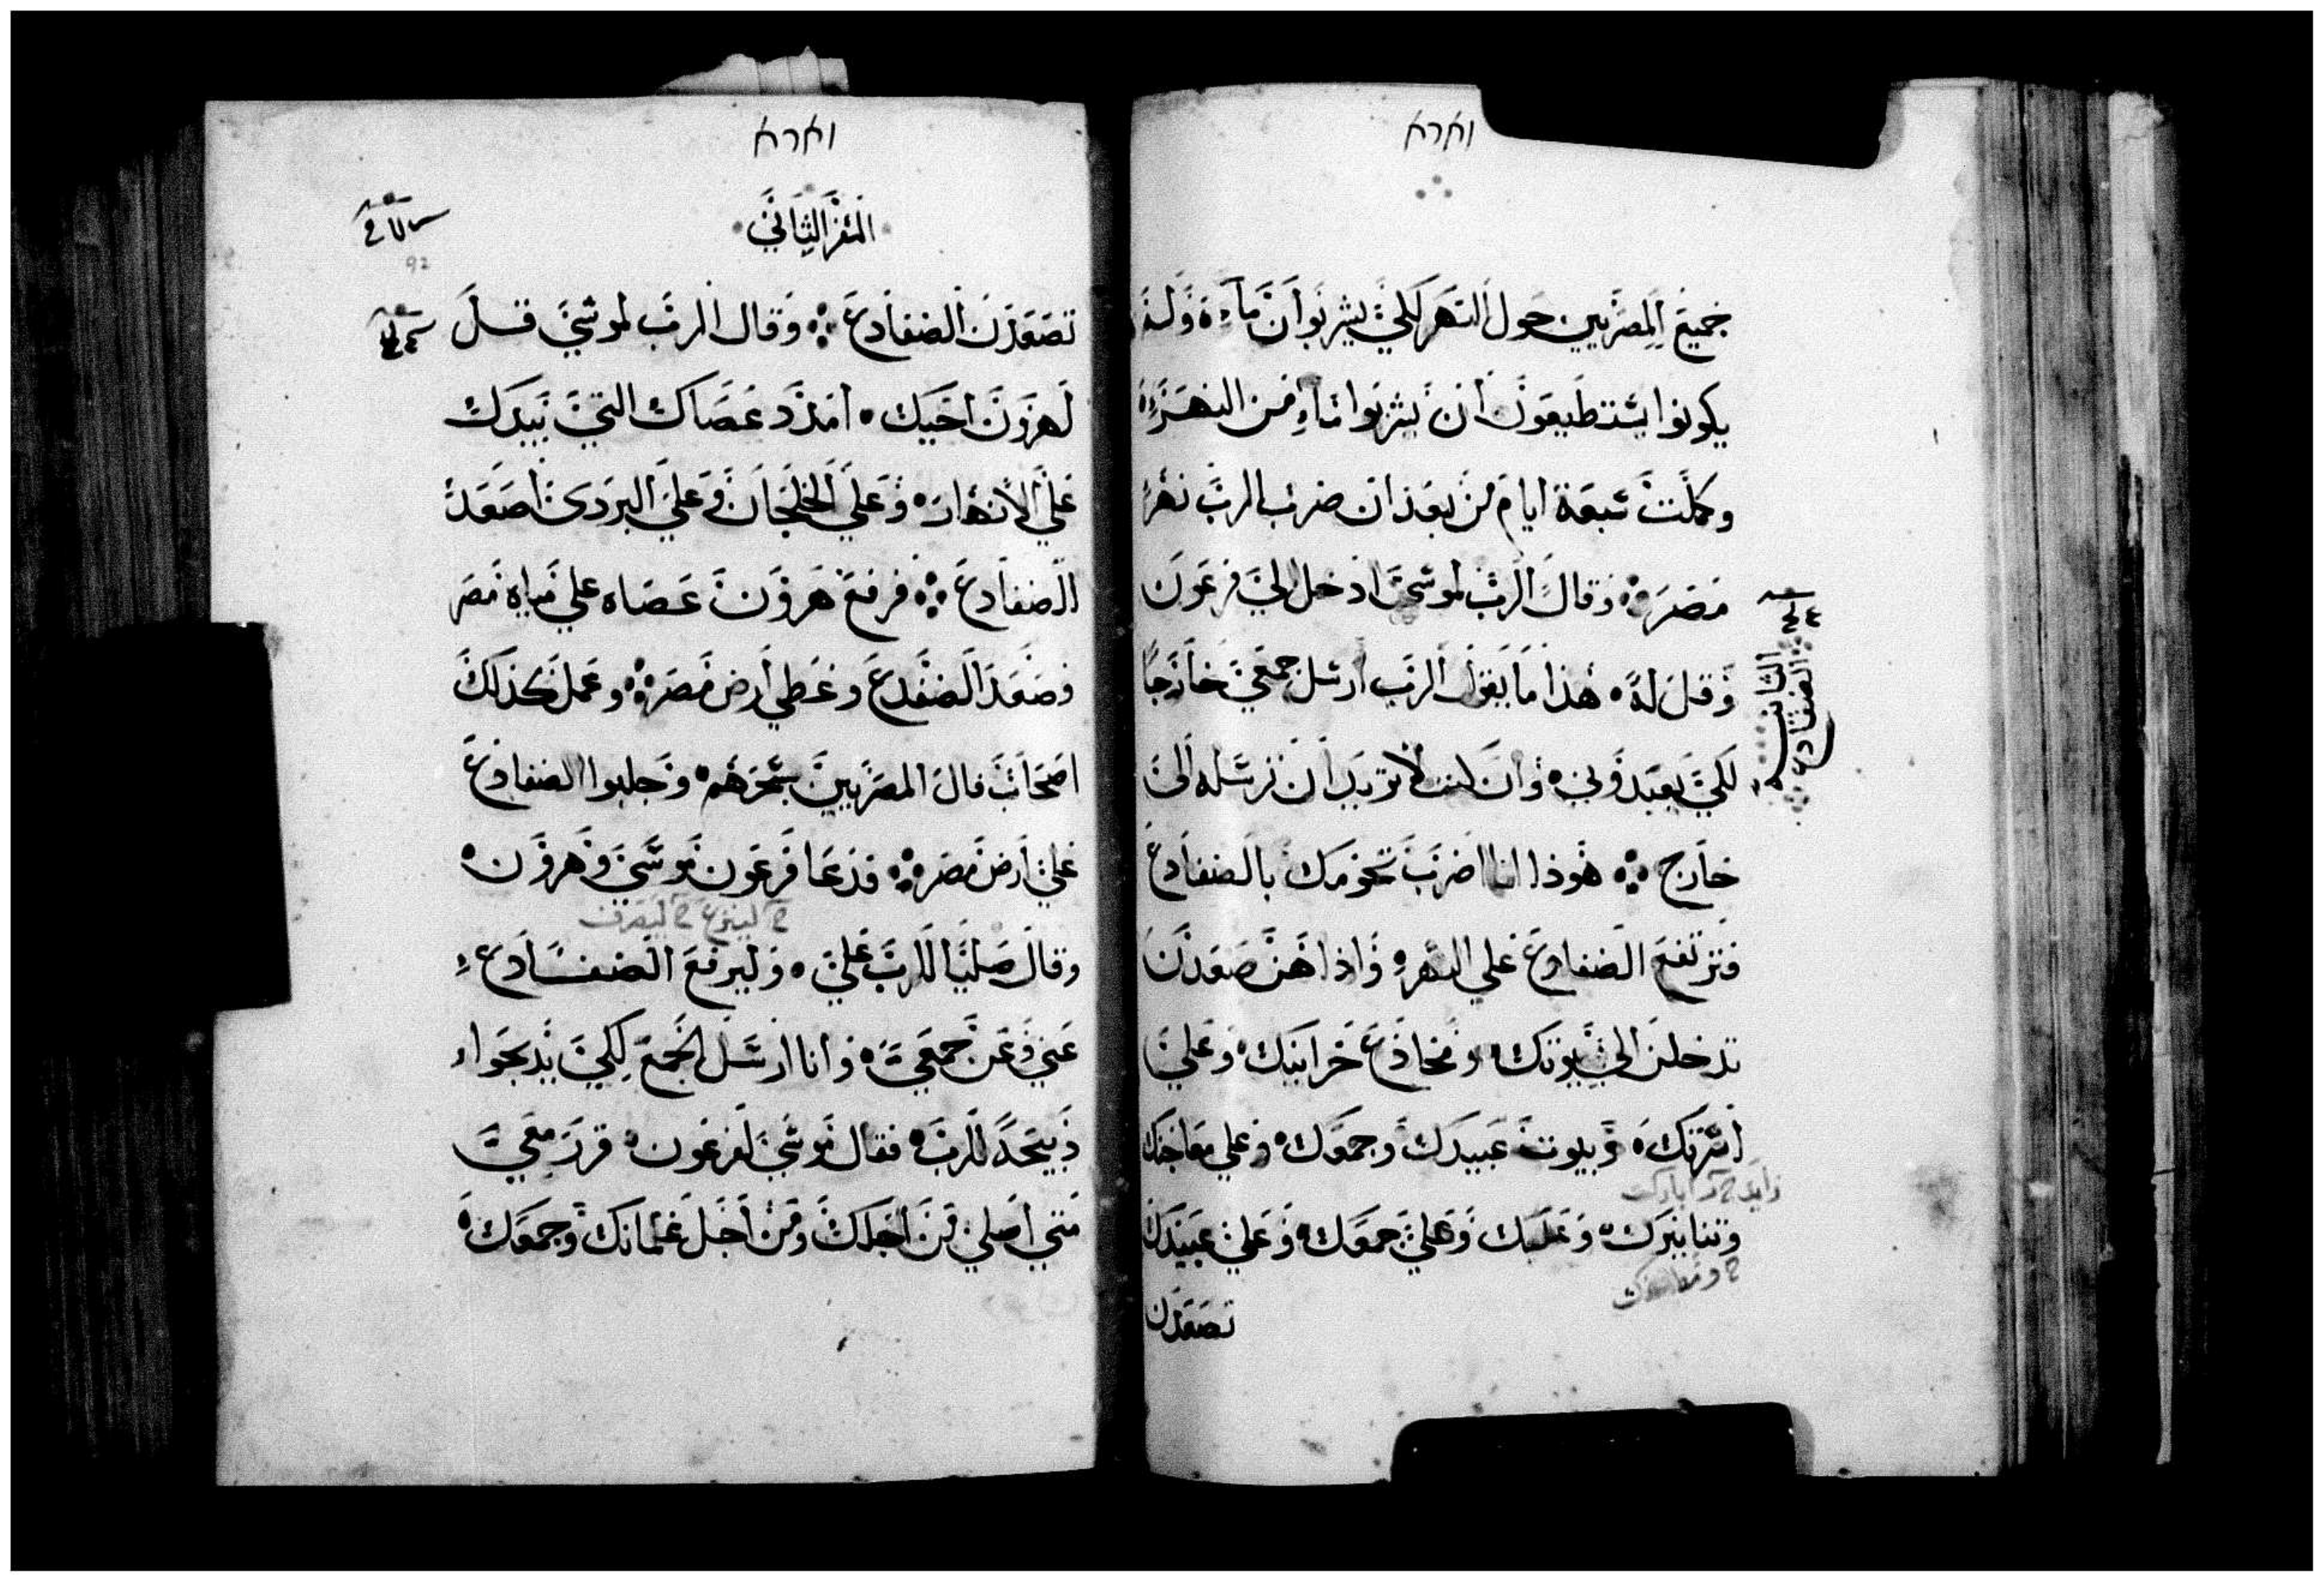 וארא
جميع المصريين حول النهر لكي يشربوا ان ماء ولم
يكونوا يستطيعون ان يشربوا ماء من النهر
وكملت سبعة ايام من بعد ان ضرب الرب نهر
مصر وقال الرب لموسى ادخل الي فرعون
وقل له هذا ما يقول الرب ارسل جمعي خارجا
لكي يعبدوني وان كنت لا تريد ان ترسله الى
خارج هوذا انا اضرب تخومك بالضفادع
فترتفع الضفادع علي النهر واذا هن صعدن
تدخلن الي بيوتك ومخادع خزاينك وعلي
اسرتك وبيوت عبيدك وجمعك وعلي معاجنك
زايد
وتنانيرك وعليك وعلي جمعك وعلي عبيدك
تصعدن
الضفادع
وארא
السفر الثاني
92
تصعدن الضفادع وقال الرب لموسي قل
لهرون اخيك امدد عصاك التي بيدك
علي الانهار وعلي الخلجان وعلي البردى اصعد
الضفادع فرفع هرون عصاه علي مياه مصر
وصعد الضفدع وغطي ارض مصر وعمل كذلك
اصحاب فال المصريين بسحرهم وجلبوا الضفادع
علي ارض مصر فدعا فرعون موسي وهرون
لينزع ليصرف
وقال صليا للرب علي وليرفع الضفادع
عني وعن جمعي وانا ارسل الجمع لكي يذبحوا
ذبيحة للرب فقال موسي لفرعون قرر معي
متي اصلي من اجلك ومن اجل غلمانك وجمعك